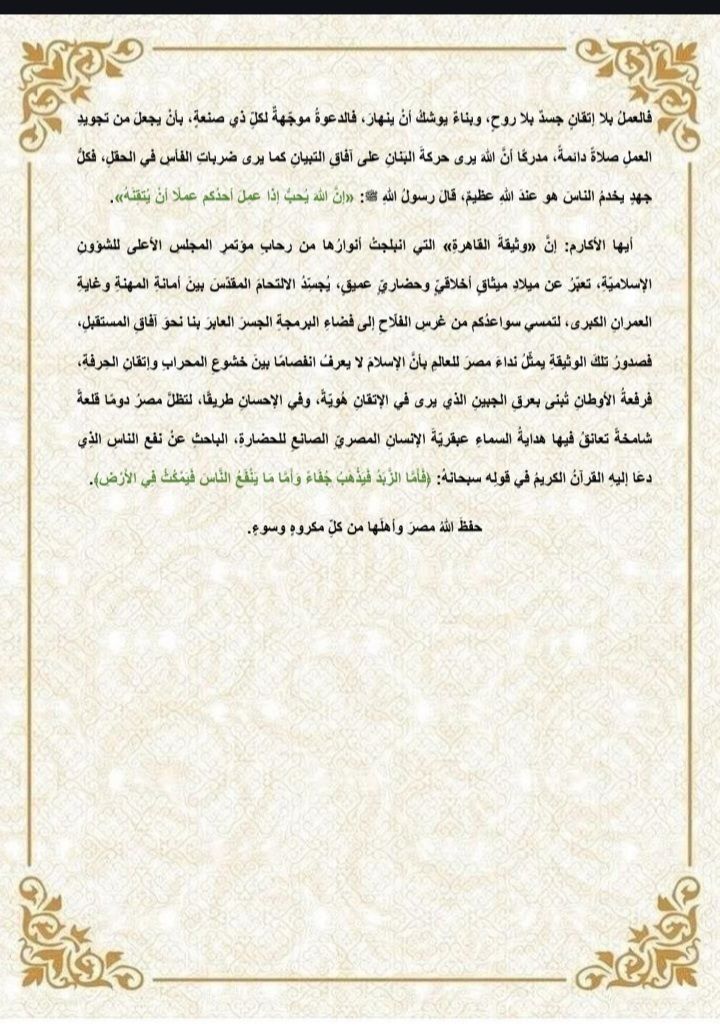 فالعملُ بلا إتقانٍ جسدٌ بلا روحٍ، وبناءٌ يوشكُ أنْ ينهارَ، فالدعوةُ موجّهةٌ لكلِّ ذي صنعةٍ، بأنْ يجعلَ من تجويدِ
العملِ صلاةً دائمةً، مدركًا أنَّ اللهَ يرى حركةَ البَنانِ على آفاقِ التبيانِ كما يرى ضرباتِ الفأسِ في الحقلِ، فكلُّ
جهدٍ يخدمُ الناسَ هو عندَ اللهِ عظيمٌ، قالَ رسولُ اللهِ ﷺ: «إنَّ اللهَ يُحبُّ إذَا عملَ أحدُكم عملًا أنْ يُتقنَهُ».
أيها الأكارم: إنَّ «وثيقةَ القاهرةِ» التي انبلجتْ أنوارُها من رحابِ مؤتمرِ المجلسِ الأعلى للشؤونِ
الإسلاميّةِ، تعبّرُ عن ميلادِ ميثاقٍ أخلاقيٍّ وحضاريٍّ عميقٍ، يُجسِّدُ الالتحامَ المقدّسَ بينَ أمانةِ المهنةِ وغايةِ
العمرانِ الكبرى، لتمسي سواعدُكم من غرسِ الفلّاحِ إلى فضاءِ البرمجةِ الجسرَ العابرَ بنا نحوَ آفاقِ المستقبلِ،
فصدورُ تلكَ الوثيقةِ يمثّلُ نداءَ مصرَ للعالمِ بأنَّ الإسلامَ لا يعرفُ انفصامًا بينَ خشوعِ المحرابِ وإتقانِ الحرفةِ،
فرفعةُ الأوطانِ تُبنى بعرقِ الجبينِ الذي يرى في الإتقانِ هُويّةً، وفي الإحسانِ طريقًا، لتظلَّ مصرُ دومًا قلعةً
شامخةً تعانقُ فيها هدايةُ السماءِ عبقريّةَ الإنسانِ المصريِّ الصانعِ للحضارةِ، الباحثِ عنْ نفعِ الناسِ الذِي
دعَا إليهِ القرآنُ الكريمُ في قولِه سبحانهُ: ﴿فَأَمَّا الزَّبَدُ فَيَذْهَبُ جُفَاءً وَأَمَّا مَا يَنْفَعُ النَّاسَ فَيَمْكُثُ فِي الأَرْضِ﴾.
حفظَ اللهُ مصرَ وأهلَها من كلِّ مكروهٍ وسوءٍ.